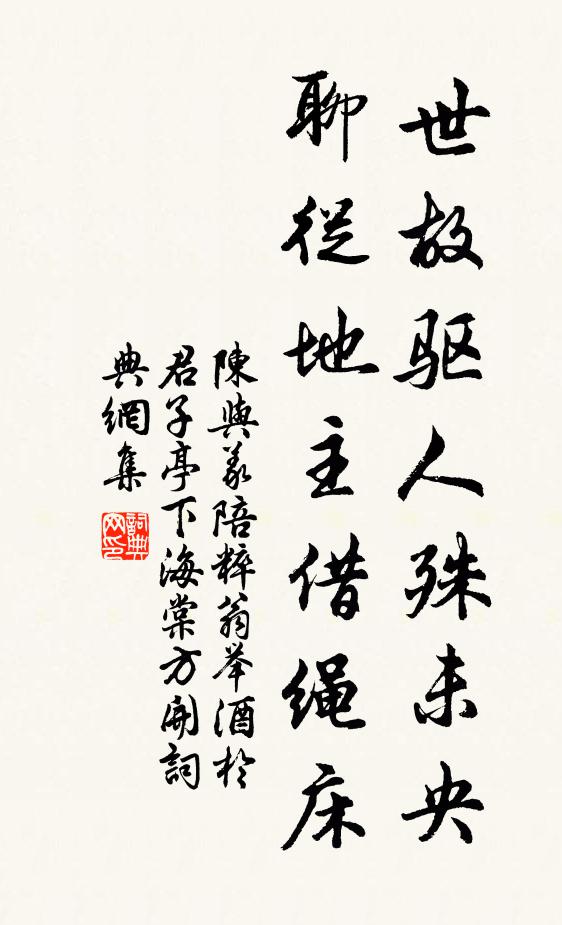 世故驱人殊未央
聊從地主借绳床
陳與義陪粹翁举酒於
君子亭下海棠方開詞
典網集
詞典网印